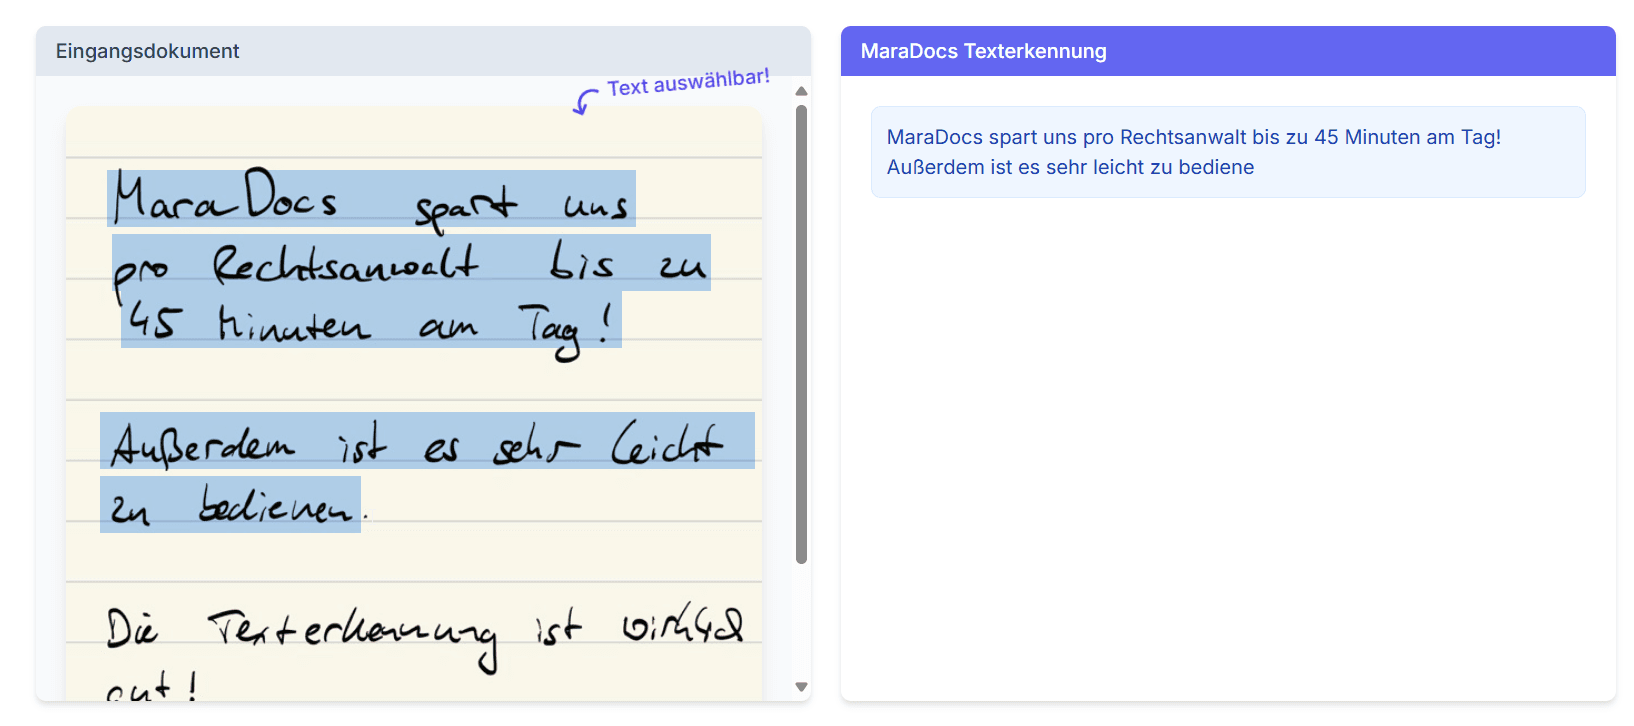 Eingangsdokument
Text auswählbar!
MaraDocs spart uns
pro Rechtsanwalt bis zu
45 Minuten am Tag!
Außerdem ist es sehr leicht
zu bedienen.
Die Texterkennung ist wirklich
gut!
MaraDocs Texterkennung
MaraDocs spart uns pro Rechtsanwalt bis zu 45 Minuten am Tag!
Außerdem ist es sehr leicht zu bediene